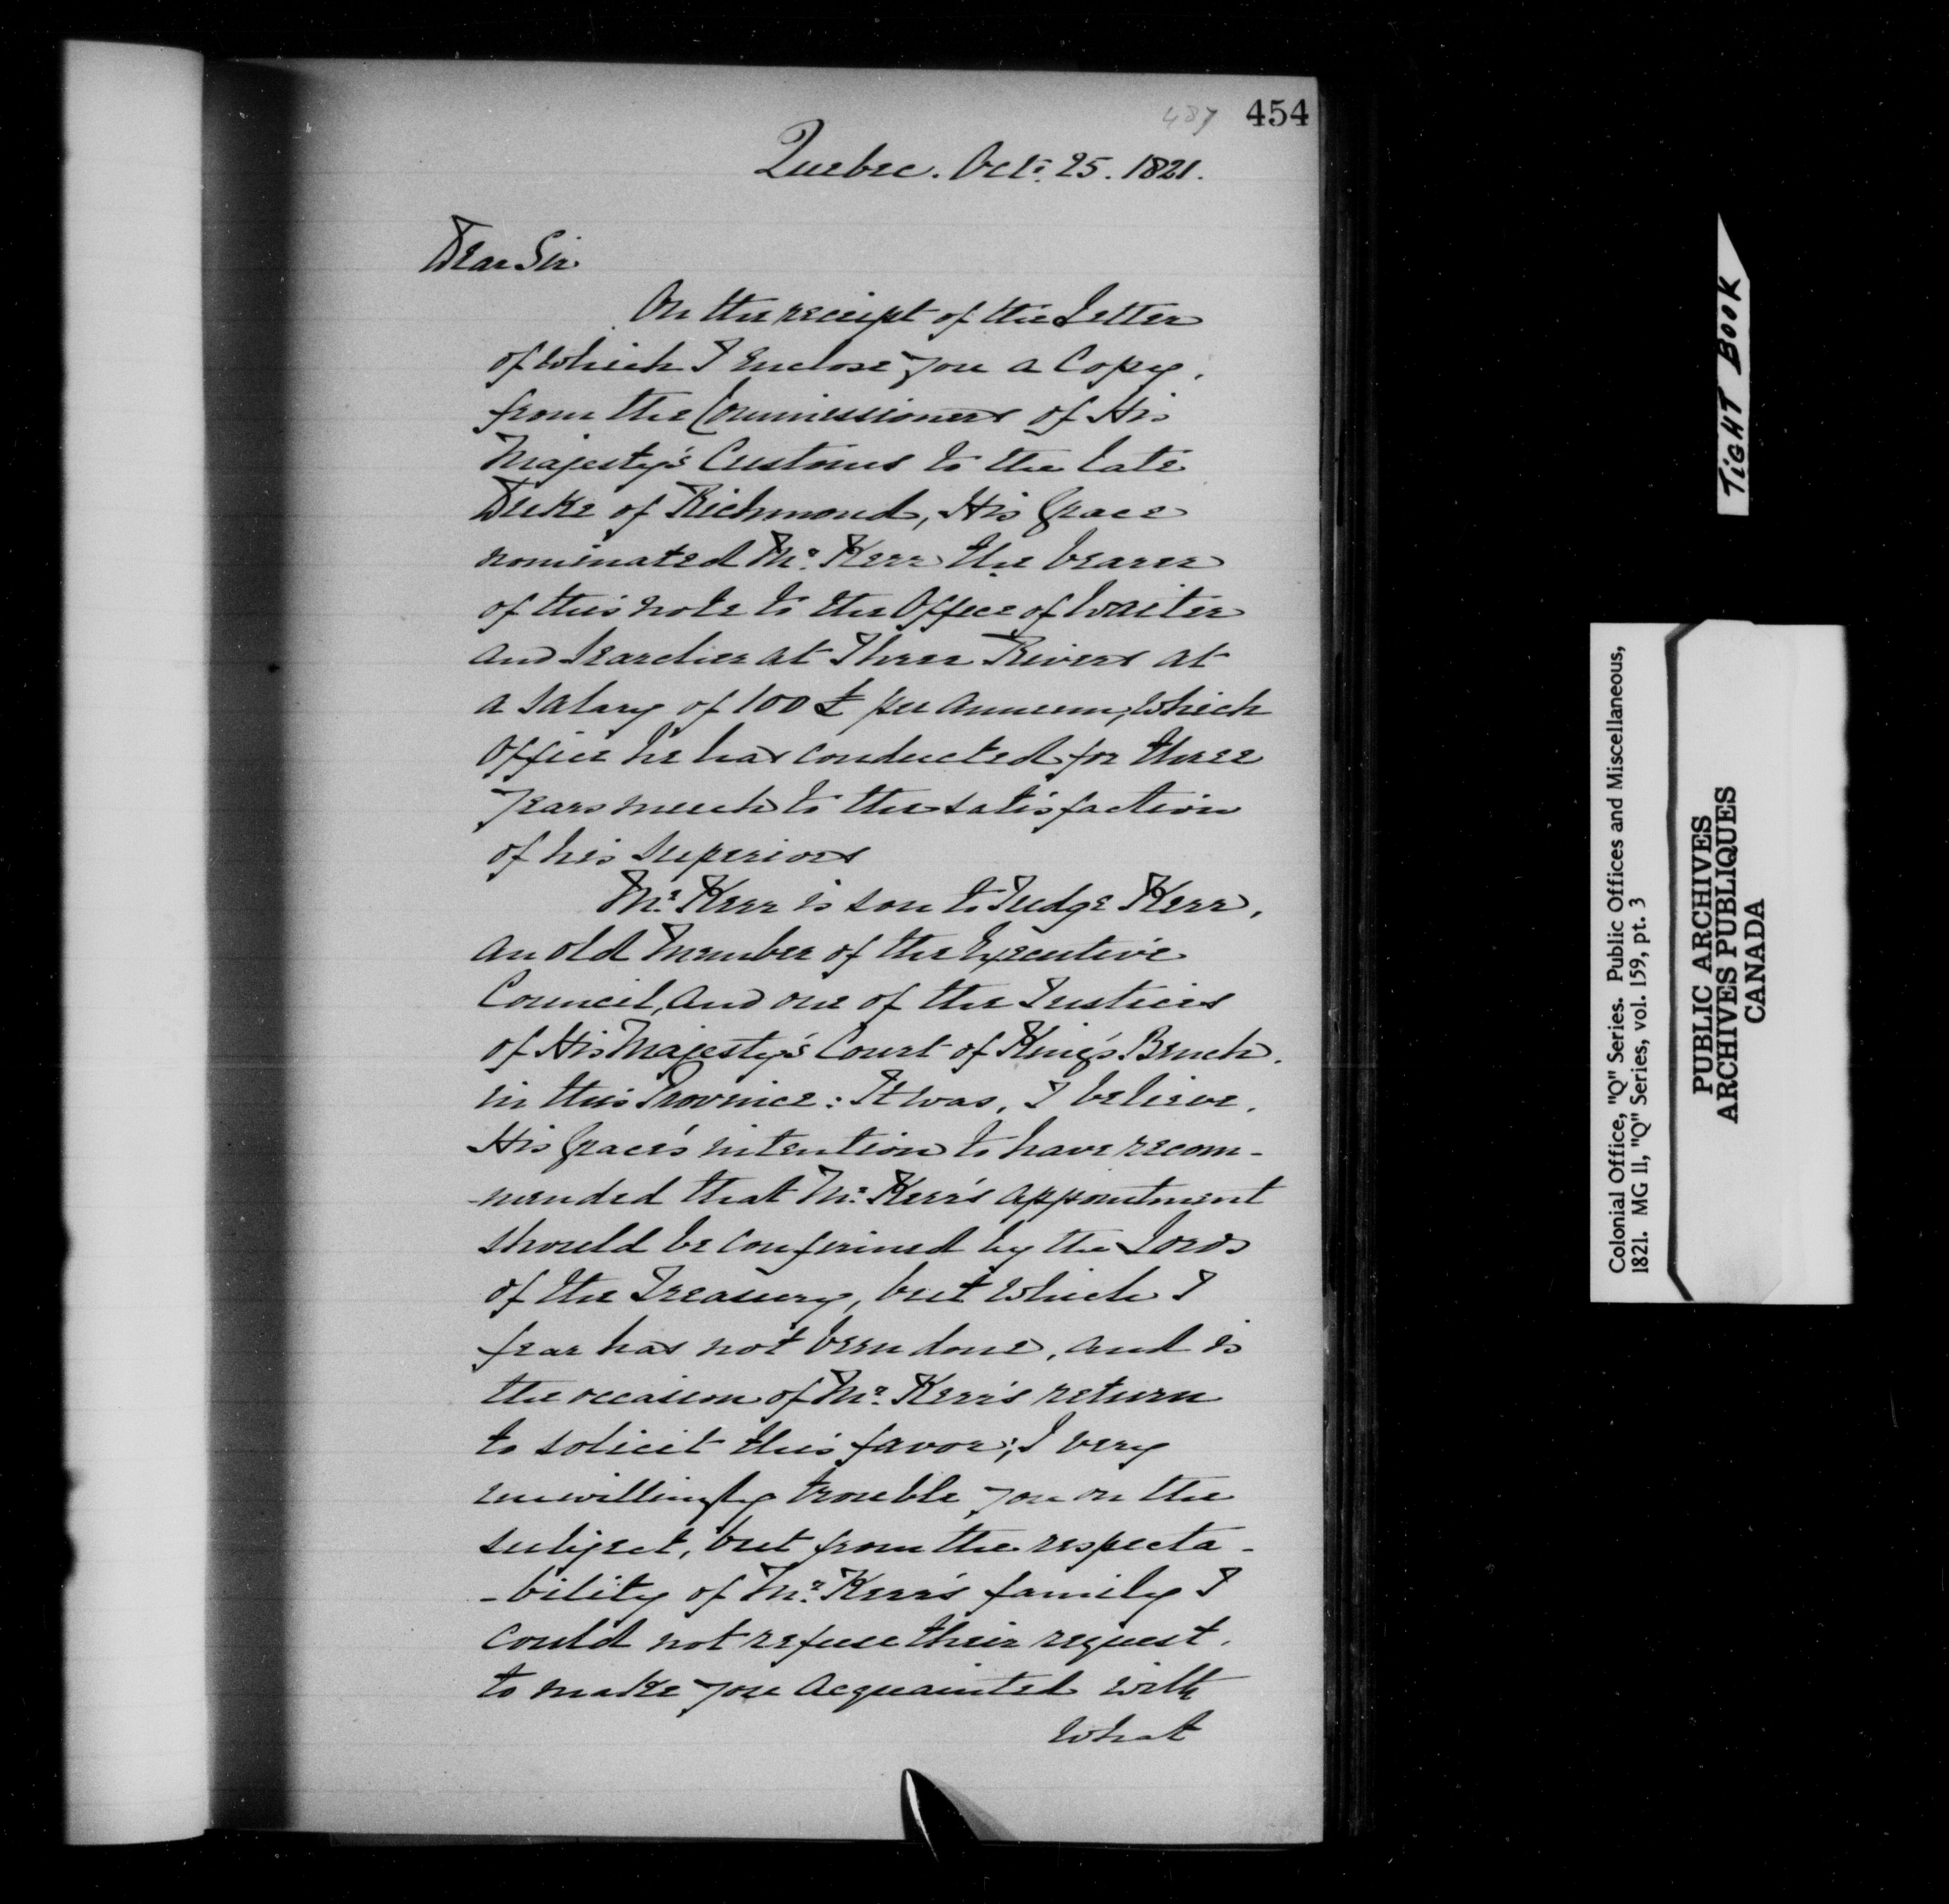 487 454
Quebec. Octr. 25. 1821.
Dear Sir
On the receipt of the Letter
of which I enclose you a Copy,
from the Commissioners of His
Majesty's Customs to the late
Duke of Richmond, His Grace
nominated Mr. Kerr the bearer
of this note to the Office of Waiter
and Searcher at Three Rivers at
a salary of 100 £ per annum, which
Office he has conducted for three
years much to the satisfaction
of his Superiors
Mr. Kerr is son to Judge Kerr,
an old Member of the Executive
Council, and one of the Justices
of His Majesty's Court of King's Bench.
in this Province: It was, I believe,
His Grace's intention to have recom-
-mended that Mr. Kerr's appointment
should be confirmed by the Lords
of the Treasury, but which I
fear has not been done, and is
the occasion of Mr. Kerr's return
to solicit this favor; I very
unwillingly trouble you on the
subject, but from the respecta-
-bility of Mr. Kerr's family I
could not refuse their request,
to make you acquainted with
what
TIGHT BOOK
Colonial Office, "Q" Series. Public Offices and Miscellaneous,
1821. MG 11, "Q" Series, vol. 159, pt. 3
PUBLIC ARCHIVES
ARCHIVES PUBLIQUES
CANADA